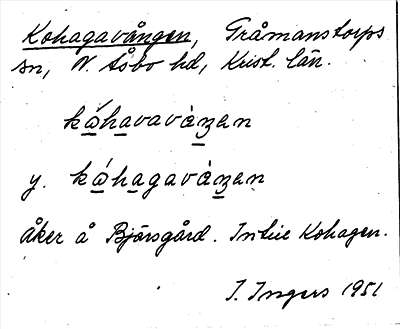 Kohagavången, Gråmanstorps
sn, N. Åsbo hd, Krist. län.
kåhavavàŋen
y. kåhagavàŋen
Åker å Bjärsgård. Intill Kohagen.
I. Ingers 1951